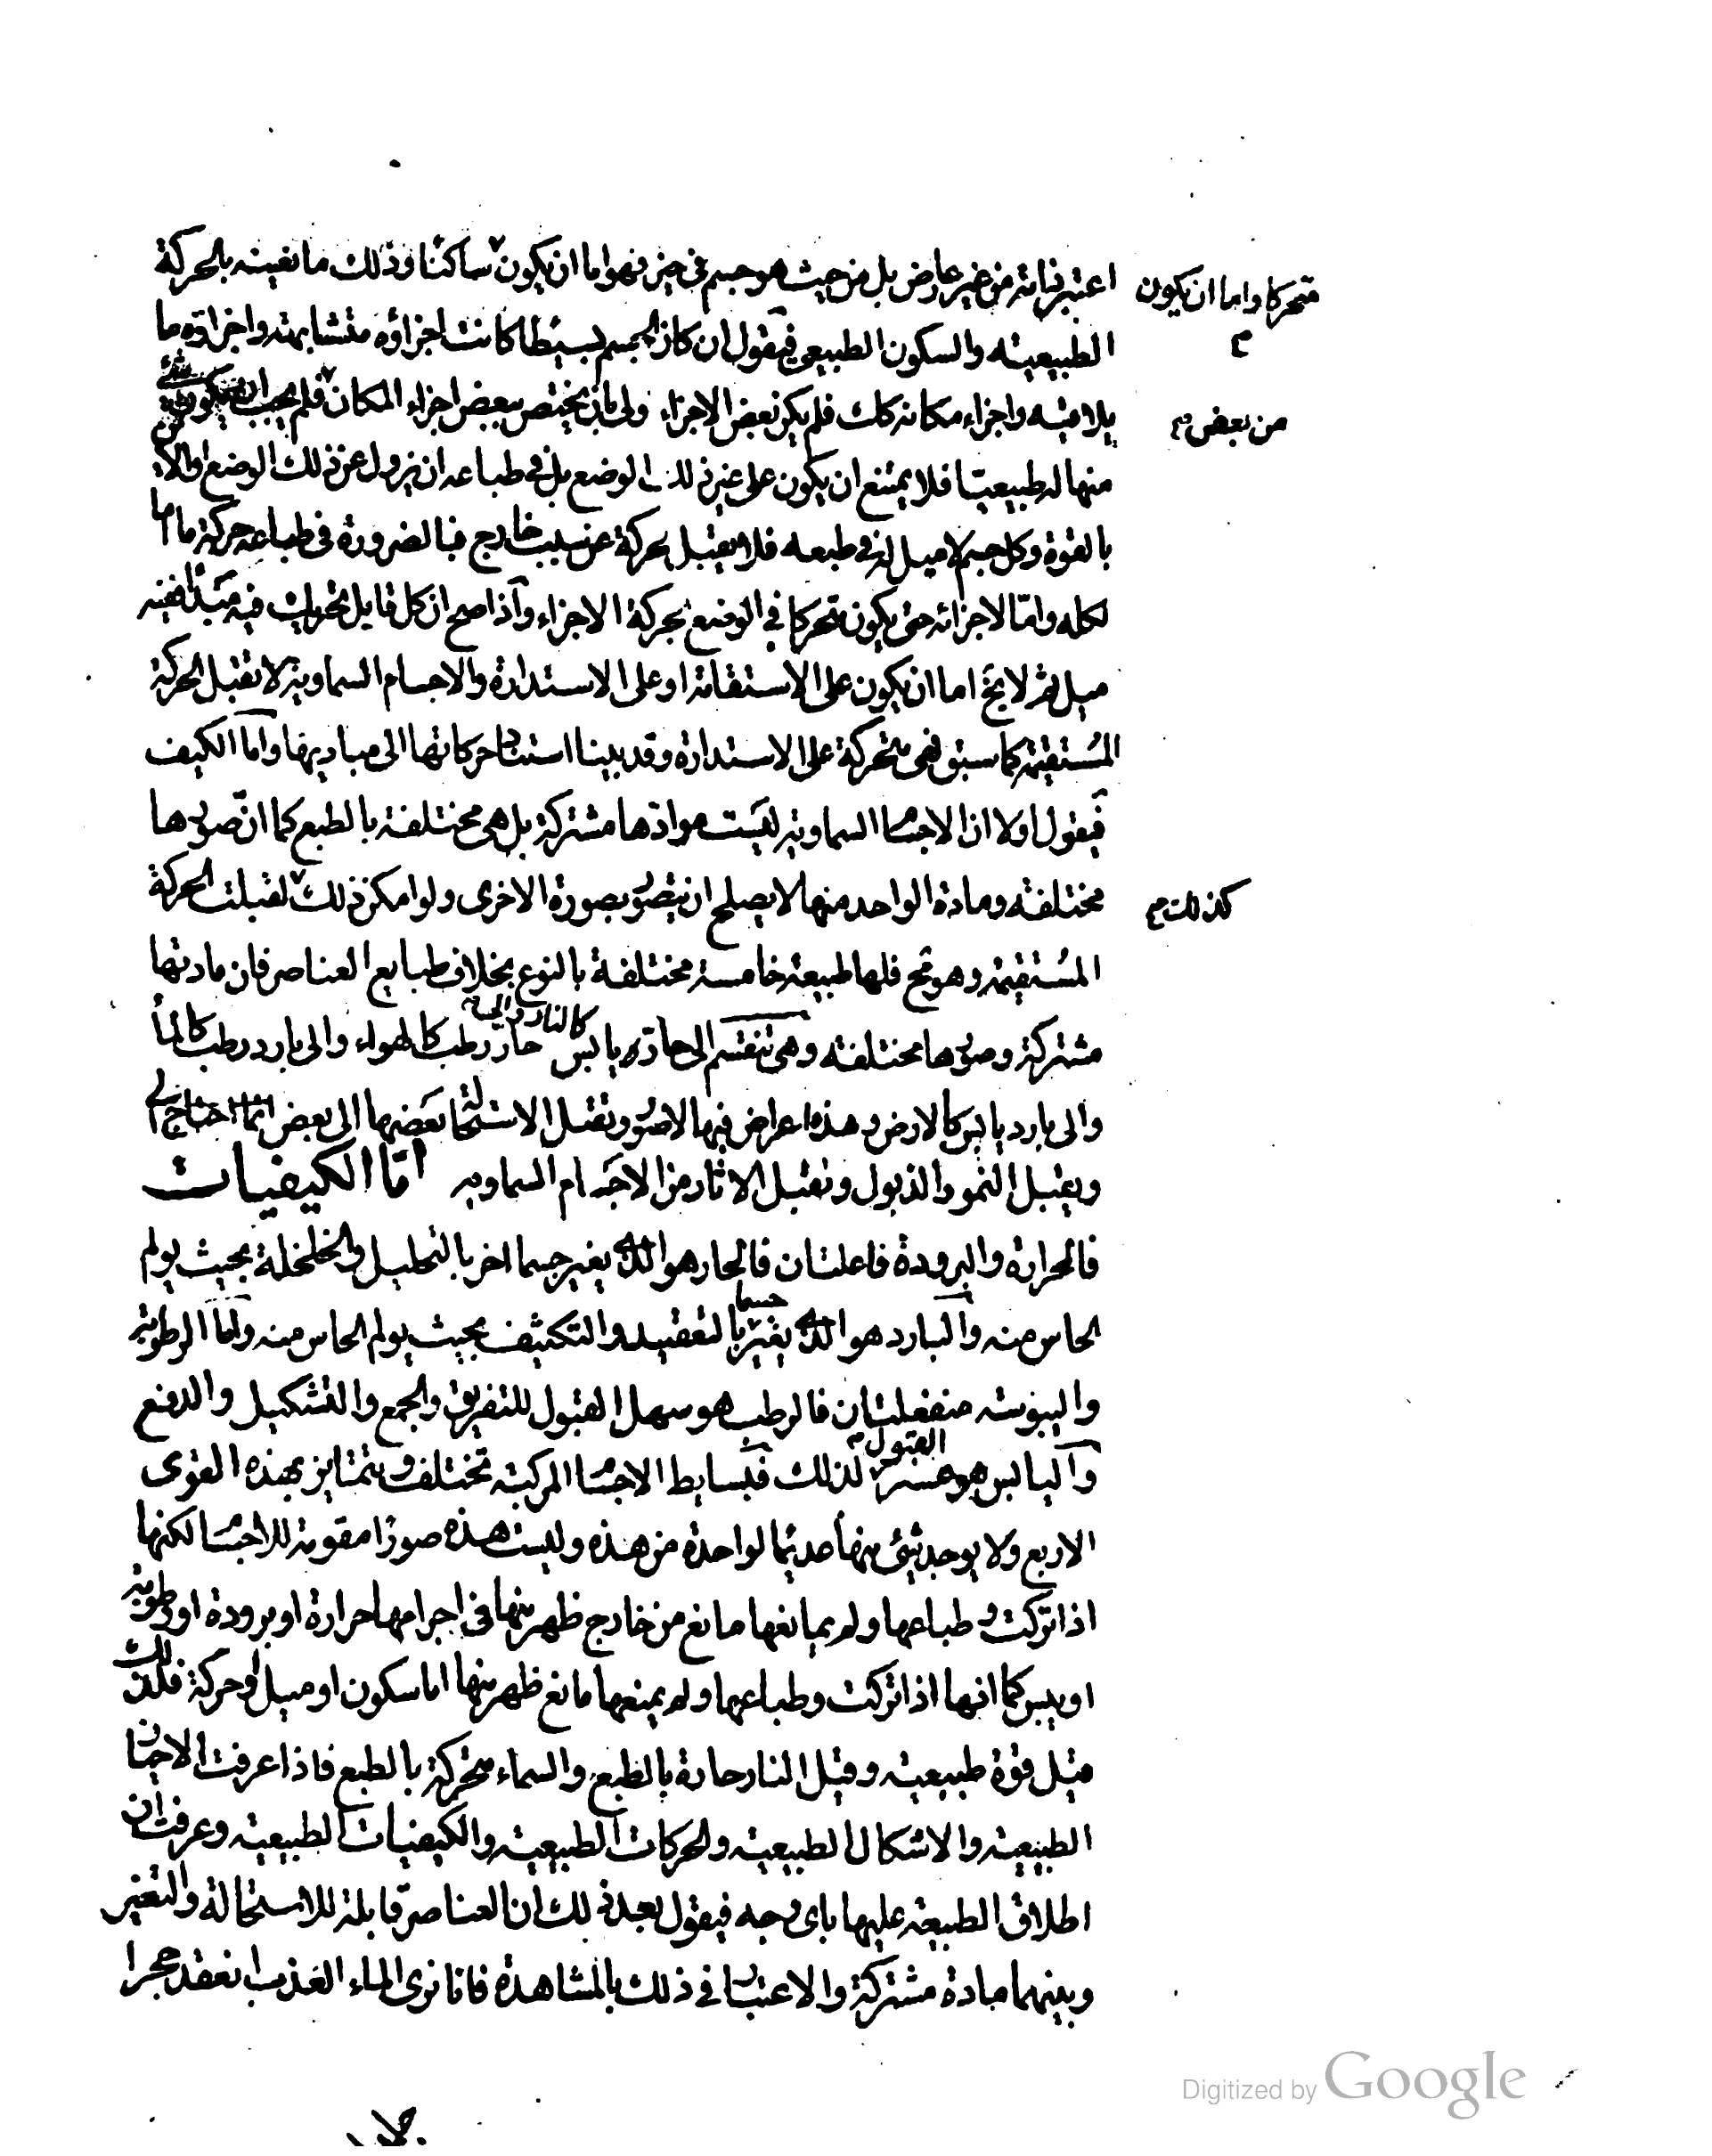 اعتبر ذاته من غير عارض بل من حيث هو جسم فى حيز فهو اما ان يكون ساكنا وذلك ما نعينه بالحركة
متحركا واما ان يكون
الطبيعيه والسكون الطبيعى فيقول ان كان الجسم بسيطا كانت اجزاؤه متشابهته واجزاؤه ما
يلاقيه واجزاء مكانه كك فلم يكن بعض الاجزاء اولى بان يختص ببعض اجزاء المكان فلم يجب ان يكون شئ
من بعض
منها له طبيعيا فلا يمتنع ان يكون على غير ذلك الوضع بل فى طباعه ان يزول عن ذلك الوضع
بالقوة وكل جسم لا ميل له فى طبعه فلا يقبل الحركة عن سبب خارج فبالضرورة فى طباعه حركة ما اما
لكله واما لاجزائه حتى يكون متحركا فى الوضع بحركة الاجزاء واذا صح ان كل قابل تحريك ففيه مبدأ
ميل ثم لا يخ اما ان يكون على الاستقامة او على الاستدارة والاجسام السماوية لا تقبل الحركة
المستقيمة كما سبق فهى متحركة على الاستدارة وقد بينا استناد حركاتها الى مباديها واما الكيف
فيقول اولا ان الاجسام السماوية ليست موادها مشتركة بل هى مختلفة بالطبع كما ان صورها
مختلفه ومادة الواحد منها لا يصلح ان يتصور بصورة الاخرى ولو امكن ذلك لقبلت الحركة
كذلك
المستقيمة وهو مح فلها طبيعة خامسة مختلفة بالنوع بخلاف طبايع العناصر فان مادتها
مشتركة وصورها مختلفه وهى تنقسم الى حار يابس كالنار والى حار رطب كالهواء والى بارد رطب كالماء
والى بارد يابس كالارض وهذه اعراض فيها لا صور وتقبل الاستحالة بعضها الى بعض
ويقبل النمو والذبول وتقبل الاثار من الاجرام السماويه اما الكيفيات
فالحرارة والبرودة فاعلتان فالحار هو الذى يغير جسما اخر بالتحليل والخلخلة بحيث يولم
الحاس منه والبارد هو الذى يغير جسما بالتعقيد والتكثيف بحيث يولم الحاس منه واما الرطوبة
واليبوسه منفعلتان فالرطب هو سهل القبول للتفريق والجمع والتشكيل والدفع
واليابس هو عسر القبول لذلك فبسايط الاجسام المركبة تختلف وتتمايز بهذه القوى
الاربع ولا يوجد شئ منها عديما لواحدة من هذه وليست هذه صورا مقومة للاجسام لكنها
اذا تركت وطباعها ولم يمانعها مانع من خارج ظهر منها فى اجرامها حرارة او برودة او رطوبة
او يبس كما انها اذا تركت وطباعها ولم يمنعها مانع ظهر منها اما سكون او ميل او حركة فلذلك
قيل قوة طبيعيه وقيل النار حارة بالطبع والسماء متحركة بالطبع فاذا عرفت الاحيان
الطبيعيه والاشكال الطبيعيه والحركات الطبيعيه والكيفيات الطبيعيه وعرفت ان
اطلاق الطبيعة عليها باى وجه فيقول بعد ذلك ان العناصر قابلة للاستحالة والتغير
وبينهما مادة مشتركة والاعتبار فى ذلك بالمشاهدة فانا نرى الماء العذب انعقد حجرا
Digitized by Google